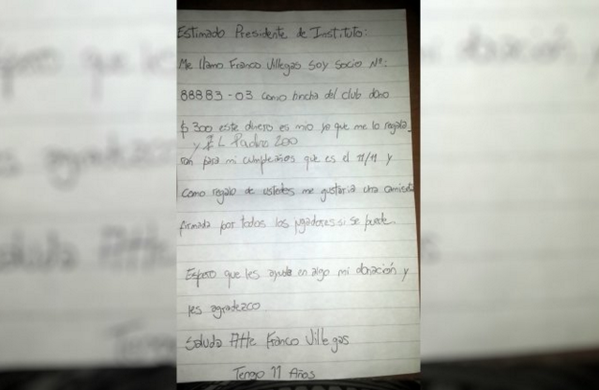 Estimado Presidente de Instituto:
Me llamo Franco Villegas soy socio N°:
88883-03 como hincha del club dono
$300 este dinero es mio ya que me lo regala_
y EL Padre 200
ron para mi cumpleaños que es el 11/11 y
como regalo de ustedes me gustaria una camiseta
firmada por todos los jugadores si se puede.
Espero que les ayude en algo mi donación y
les agradezco.
Saluda Atte Franco Villegas
Tengo 11 Años